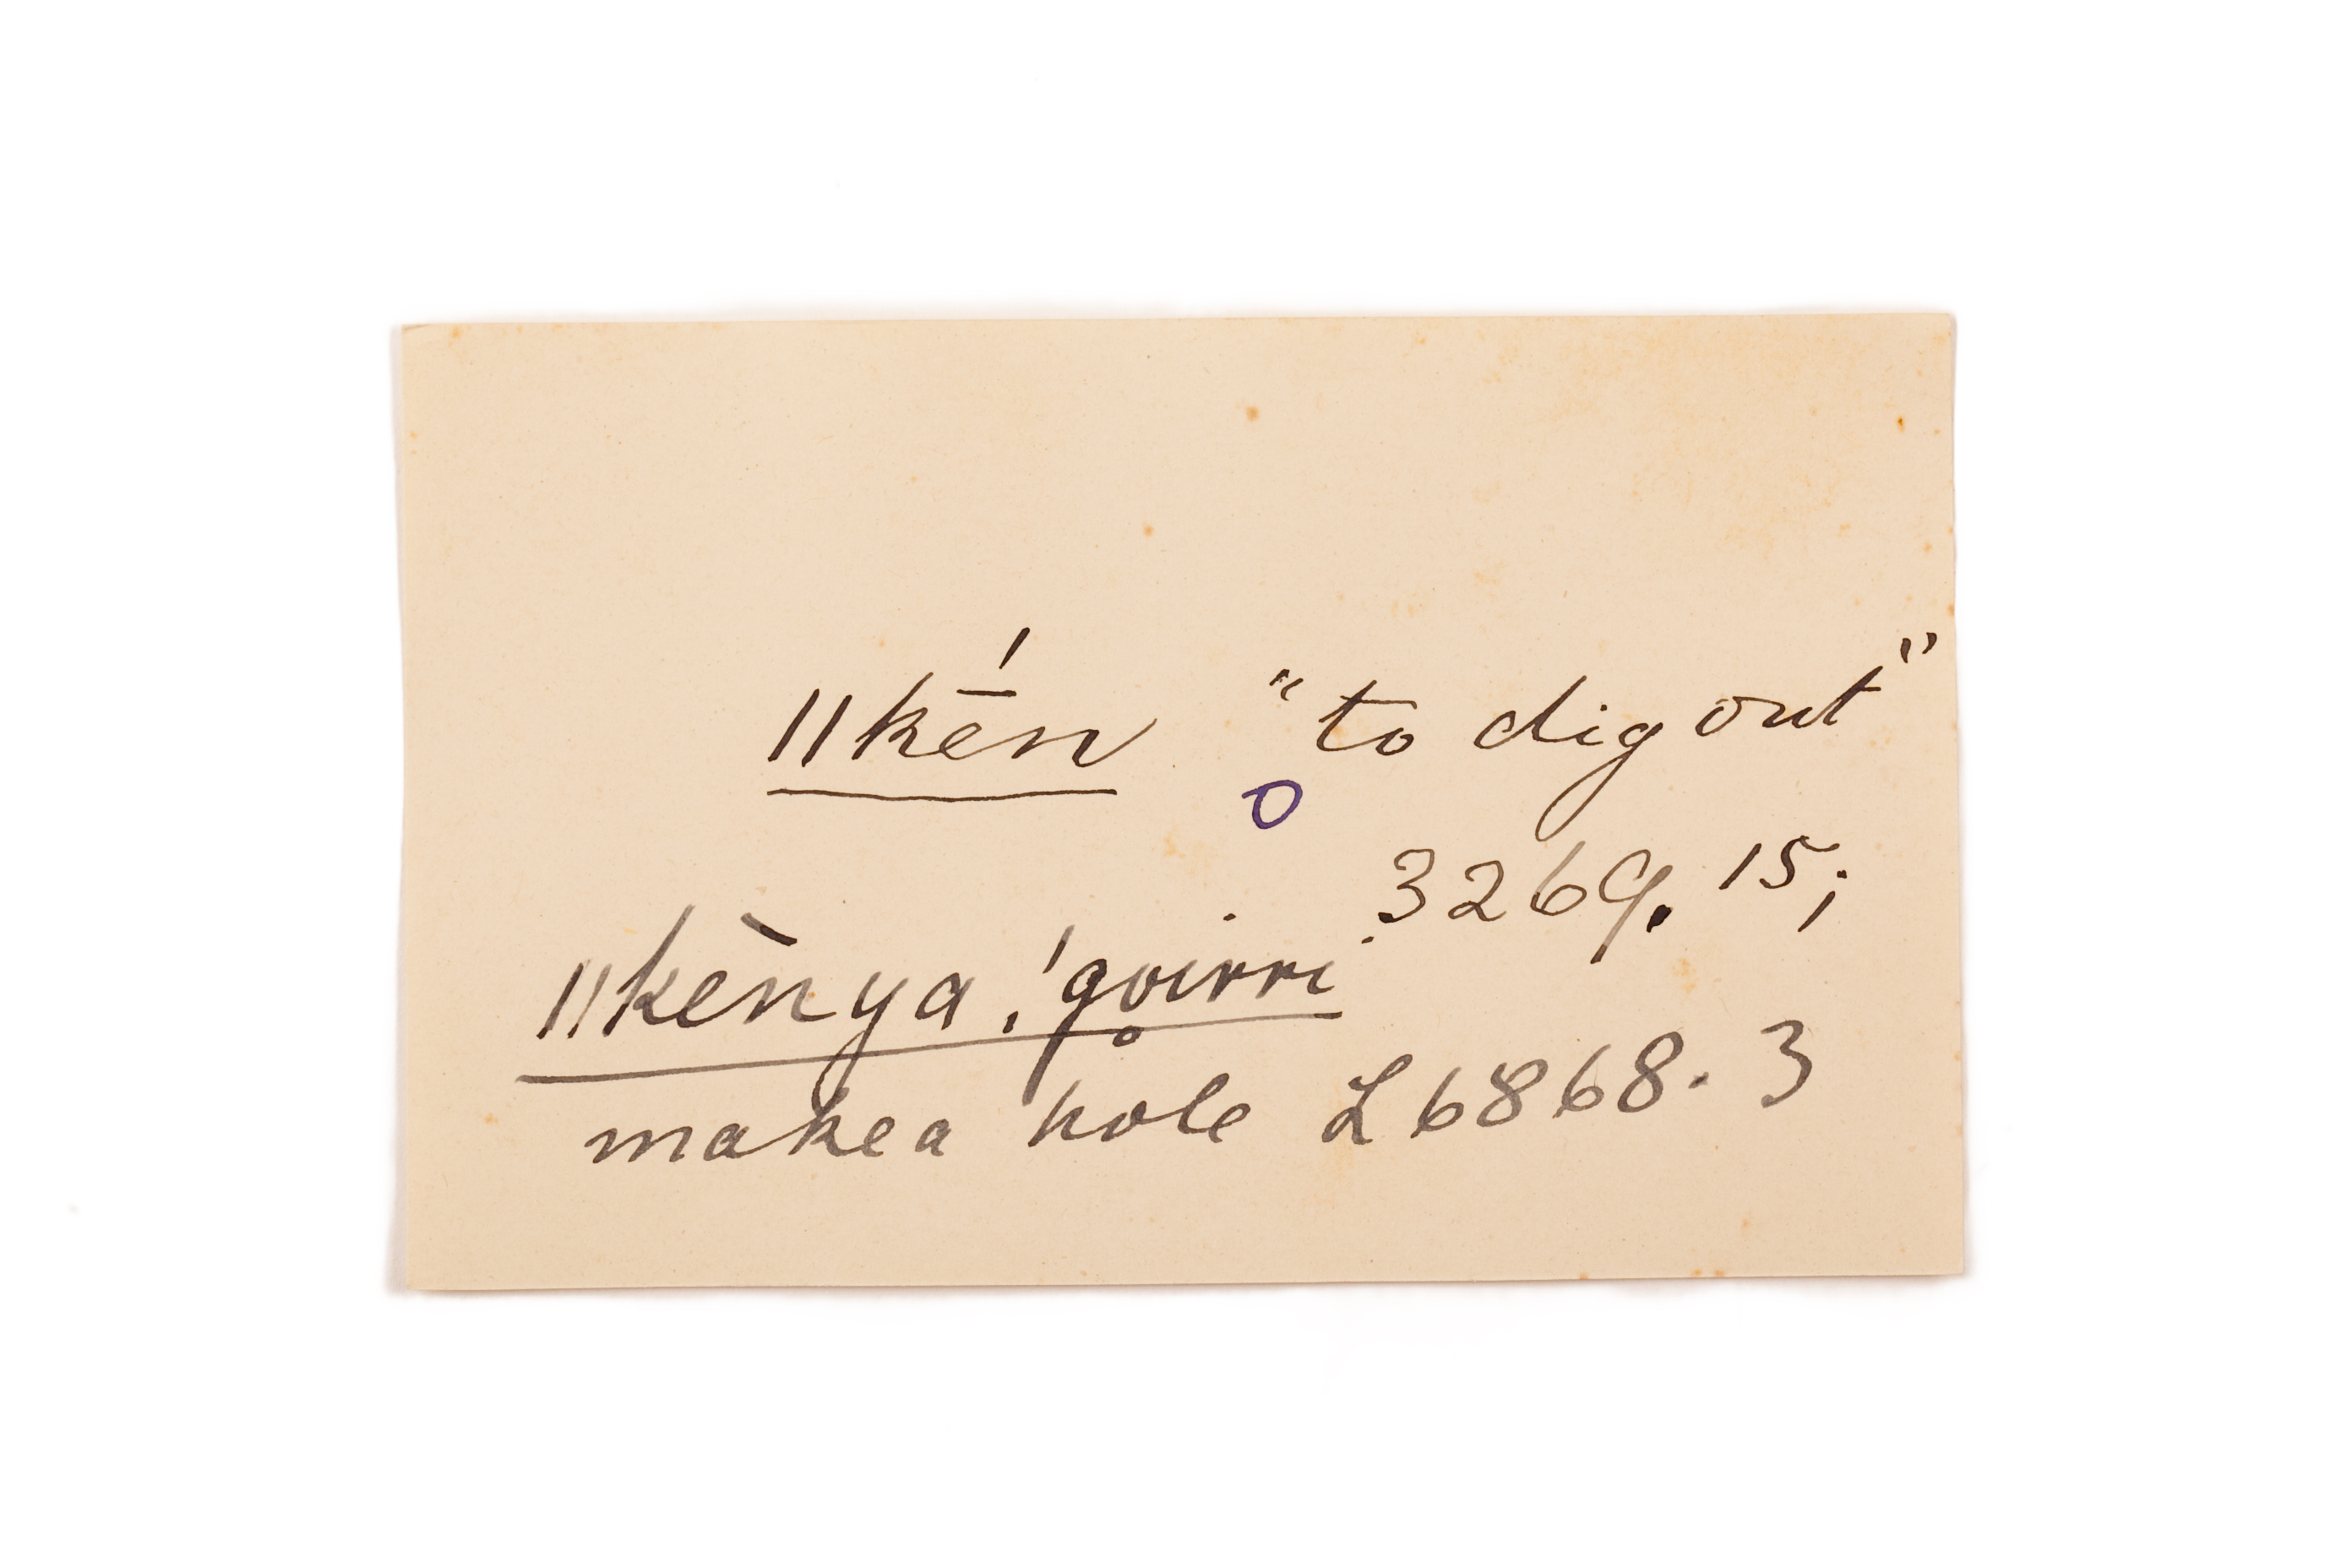 ǁkḗn "to dig out"
o
3269. 15;
ǁkènya !goirri
make a hole L 6868. 3